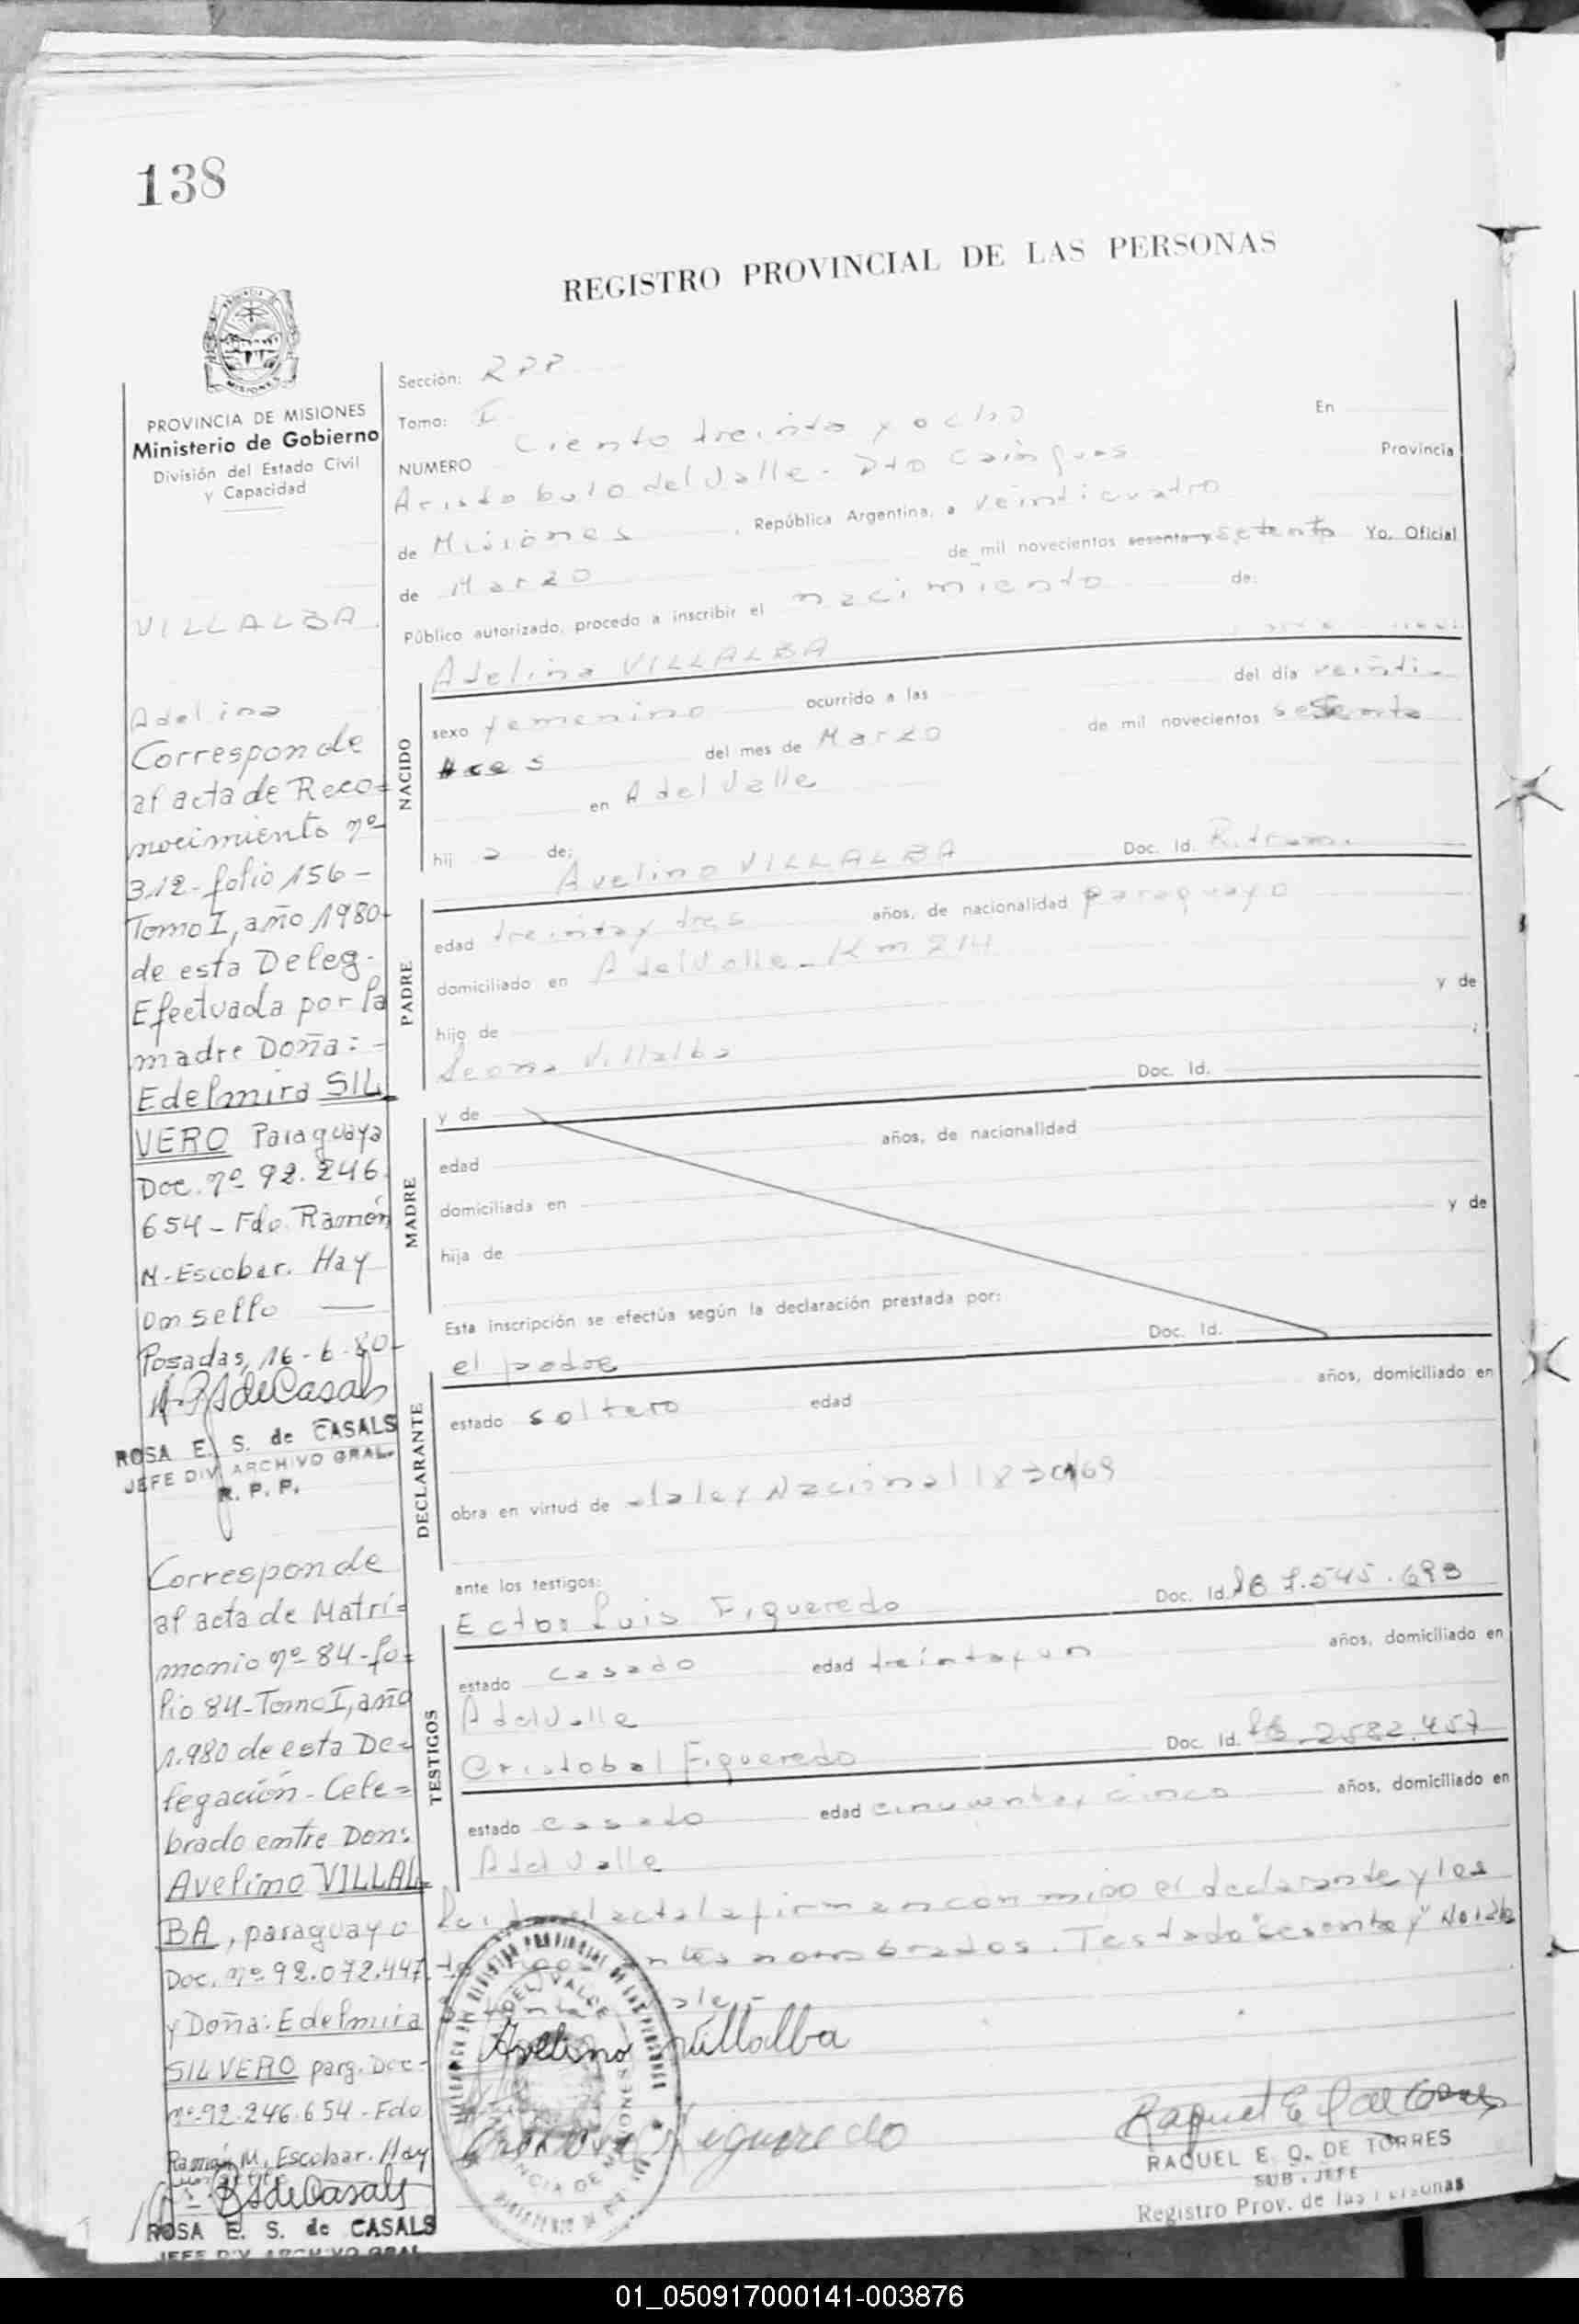 138
REGISTRO PROVINCIAL DE LAS PERSONAS
PROVINCIA DE MISIONES
Ministerio de Gobierno
División del Estado Civil
y Capacidad
VILLALBA
Adelina
Corresponde
al acta de Reco=
nocimiento nº
312-folio 156-
Tomo I, año 1980-
de esta Deleg-
Efectuada por la
madre Doña: -
Edelmira SIL
VERO Paraguaya
Doc. nº 92.246.
654-Fdo. Ramón
M-Escobar. Hay
un sello
Posadas, 16-6-80-
ROSA E. S. de CASALS
JEFE DIV ARCHIVO GRAL.
R. P. P.
Corresponde
al acta de Matri=
monio nº 84-fo=
lio 84-Tomo I, año
1.980 de esta De=
legación-Cele=
brado entre Don:
Avelino VILLAL
BA, paraguayo
Doc. nº 92.072.447.
y Doña: Edelmira
SILVERO parg. Doc-
nº-92.246.654-Fdo
Ramón M. Escobar. Hay
ROSA E. S. de CASALS
JEFE DIV ARCHIVO GRAL
Sección: RPP
Tomo: I
NUMERO Ciento treinta y ocho En
Aristobulo del Valle - Dto Cainguas Provincia
de Misiones, República Argentina, a veinticuatro
de Marzo de mil novecientos sesenta y setenta Yo, Oficial
Público autorizado, procedo a inscribir el nacimiento de:
Adelina VILLALBA
NACIDO
sexo femenino ocurrido a las del día veinti-
tres del mes de Marzo de mil novecientos setenta
en A del Valle
hij a de:
Avelino VILLALBA Doc. Id.
PADRE
edad treinta y tres años, de nacionalidad paraguayo
domiciliado en A del Valle - Km 214
hijo de y de
Villalba ;
y de Doc. Id.
MADRE
edad años, de nacionalidad
domiciliada en
hija de y de
Esta inscripción se efectúa según la declaración prestada por:
el padre Doc. Id.
DECLARANTE
estado soltero edad años, domiciliado en
obra en virtud de a la ley Nacional
ante los testigos:
Ector Luis Figueredo Doc. Id. 7.545.693
TESTIGOS
estado casado edad treinta y un años, domiciliado en
A del Valle
Cristobal Figueredo Doc. Id. 2582.457
estado casado edad cincuenta y cinco años, domiciliado en
A del Valle
el acta la firman conmigo el declarante y los
nombrados. Testado "sesenta y" No
Avelino Villalba
Figueredo
RAQUEL E. Q. DE TORRES
SUB-JEFE
Registro Prov. de las Personas
01_050917000141-003876